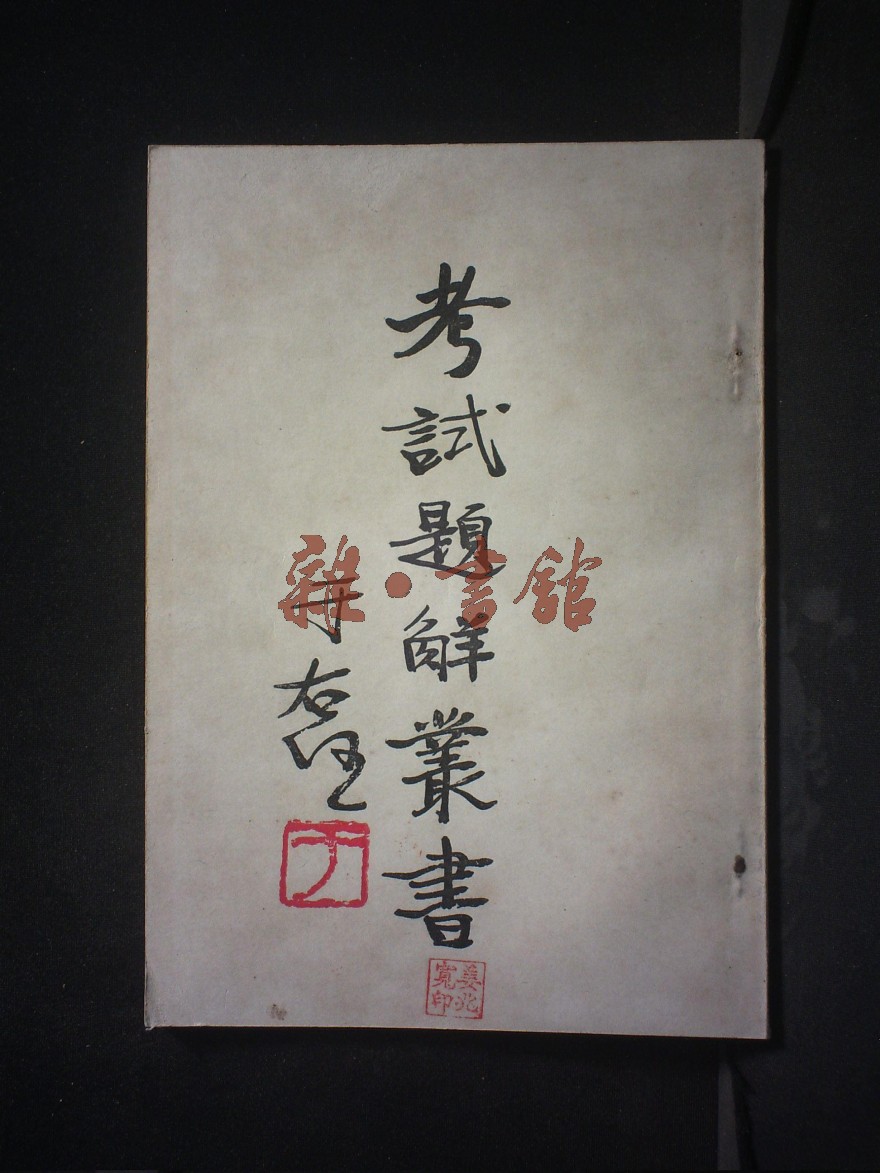 考試題解叢書
于右任
于
姜北寬印
雜·書館